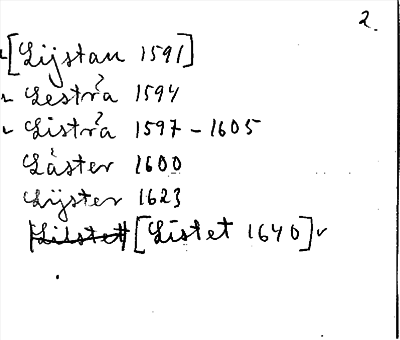 2.
[Lijstan 1591]
Lestra ? 1594
Listra ? 1597 - 1605
Låster 1600
Lijster 1623
[Listet 1640]